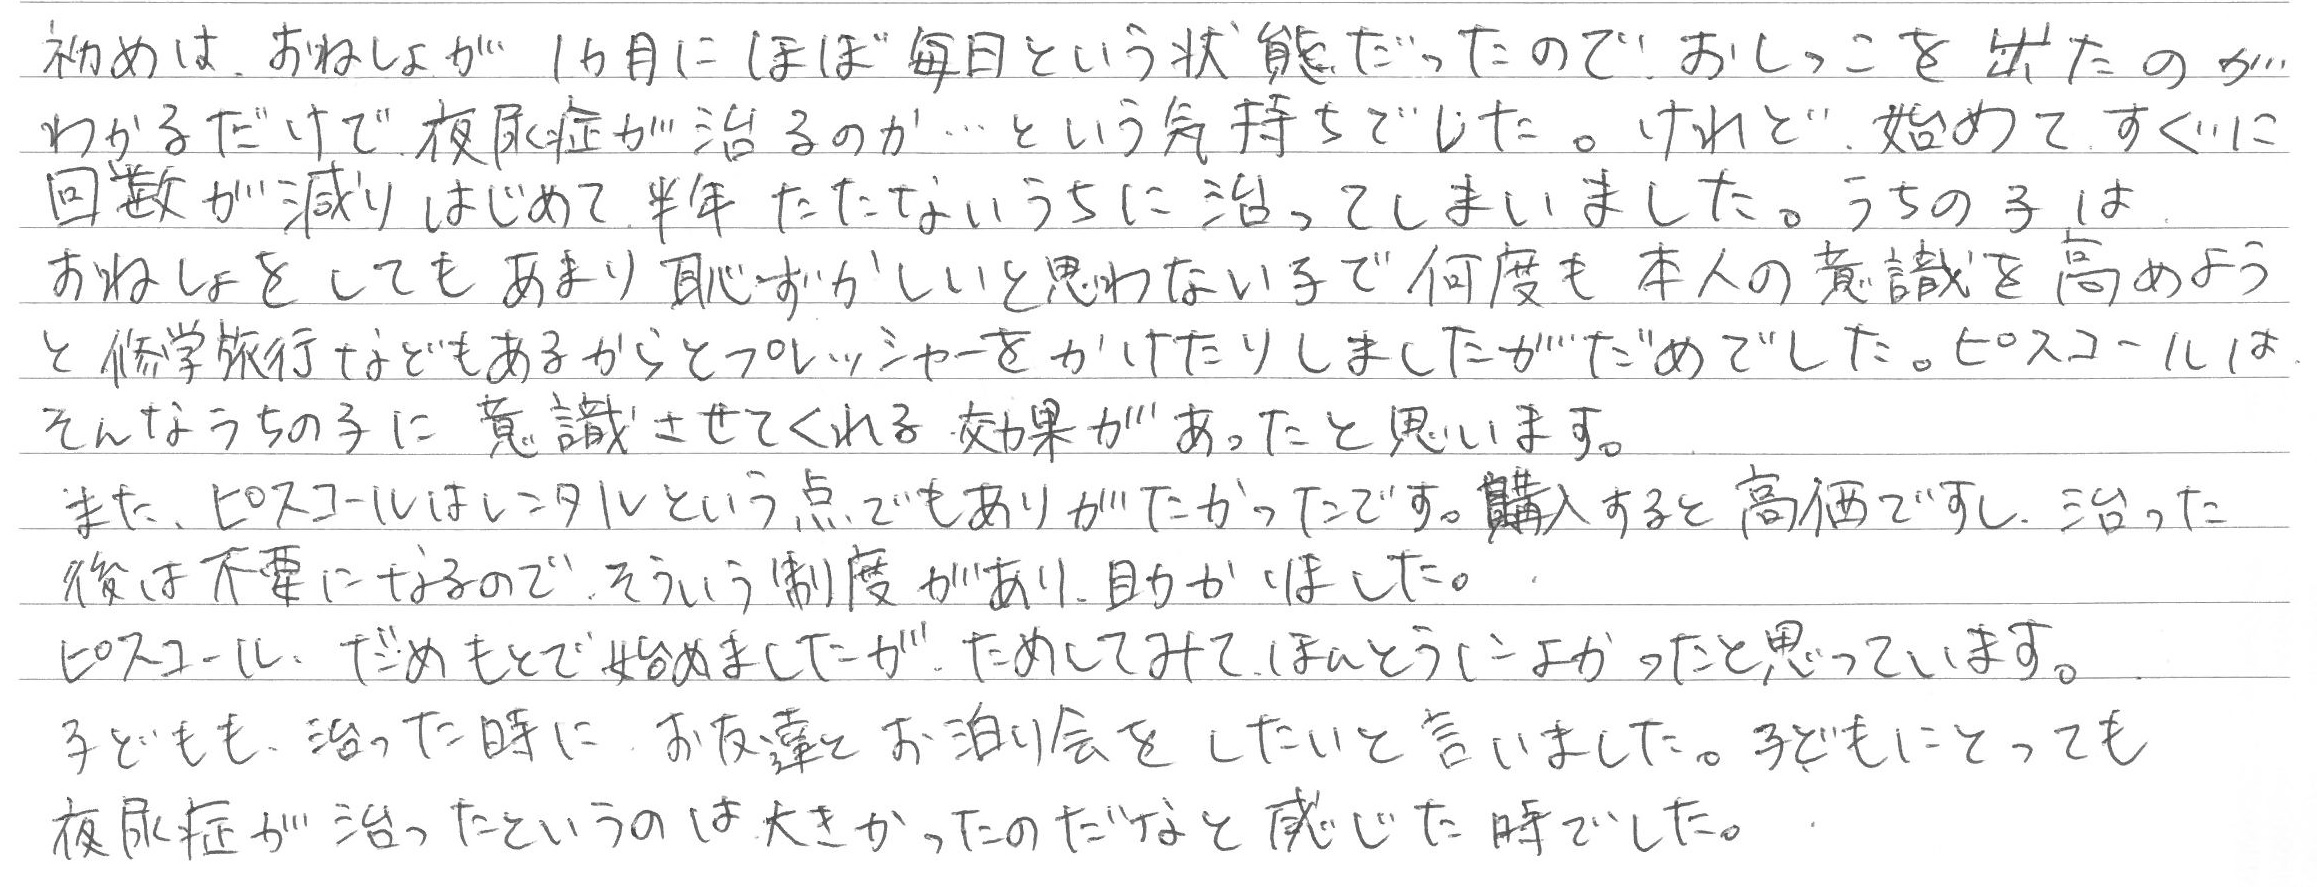 初めは、おねしょが 1ヵ月にほぼ毎日という状態だったので、おしっこを出たのが
わかるだけで、夜尿症が治るのか…という気持ちでした。けれど、始めて、すぐに
回数が減りはじめて、半年たたないうちに治ってしまいました。うちの子は、
おねしょをしてもあまり恥ずかしいと思わない子で何度も本人の意識を高めよう
と修学旅行などもあるからとプレッシャーをかけたりしましたがだめでした。ピスコールは、
そんなうちの子に意識させてくれる効果があったと思います。
また、ピスコールはレンタルという点でもありがたかったです。購入すると高価ですし、治った
後は不要になるので、そういう制度があり、助かりました。
ピスコール、だめもとで始めましたが、ためしてみて、ほんとうによかったと思っています。
子どもも、治った時に、お友達とお泊り会をしたいと言いました。子どもにとっても
夜尿症が治ったというのは大きかったのだなと感じた時でした。